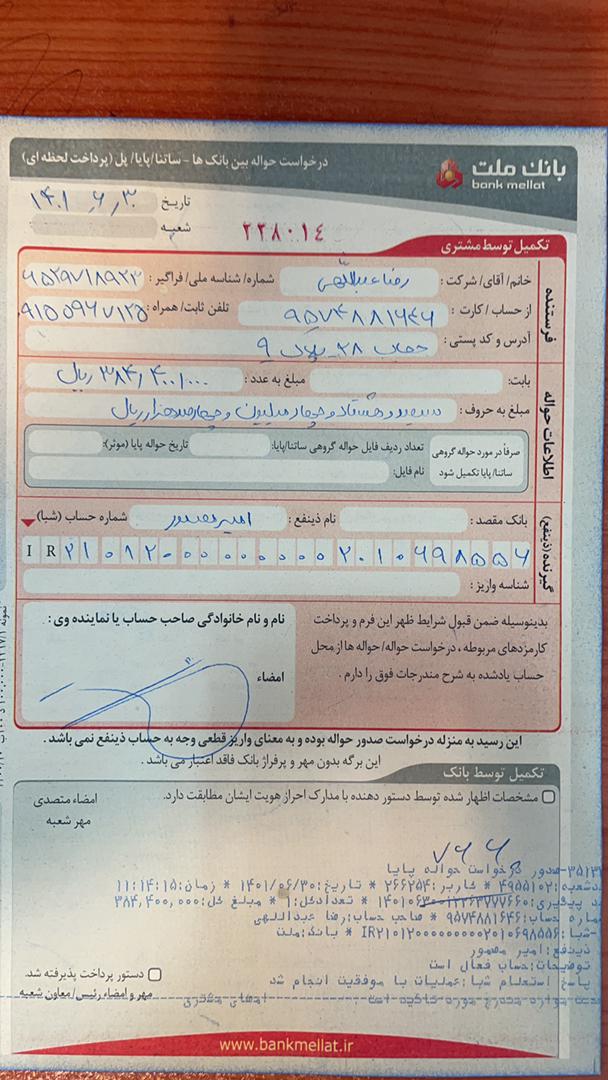 درخواست حواله بین بانک ها - ساتنا/پایا/ پل (پرداخت لحظه ای)
بانک ملت
bank mellat
تاریخ ۱۴۰۱, ۶, ۳۰
شعبه
۲۲۸۰۱٤
تکمیل توسط مشتری
فرستنده
خانم/ آقای/ شرکت: رضا عبداللهی شماره/ شناسه ملی/ فراگیر:
از حساب/ کارت: ۹۵۷۴۸۸۱۶۴۶ تلفن ثابت/ همراه: ۹۱۵۵۹۶۷۱۲۵
آدرس و کد پستی: ۲۸ - پلاک ۹
اطلاعات حواله
بابت: مبلغ به عدد: ۳۸۴,۴۰۰,۰۰۰ ریال
مبلغ به حروف: سیصد و هشتاد و چهار میلیون و چهارصد هزار ریال
صرفاً در مورد حواله گروهی ساتنا/پایا تکمیل شود
تعداد ردیف فایل حواله گروهی ساتنا/پایا: تاریخ حواله پایا (موثر):
نام فایل:
گیرنده (ذینفع)
بانک مقصد: نام ذینفع: امیر ممصور شماره حساب (شبا)
IR۲۱۰۱۲۰۰۰۰۰۰۰۰۰۲۰۱۰۶۹۸۵۵۶
شناسه واریز:
بدینوسیله ضمن قبول شرایط ظهر این فرم و پرداخت
کارمزدهای مربوطه، درخواست حواله/ حواله ها از محل
حساب یادشده به شرح مندرجات فوق را دارم.
نام و نام خانوادگی صاحب حساب یا نماینده وی:
امضاء
این رسید به منزله درخواست صدور حواله بوده و به معنای واریز قطعی وجه به حساب ذینفع نمی باشد.
این برگه بدون مهر و پرفراژ بانک فاقد اعتبار می باشد.
تکمیل توسط بانک
مشخصات اظهار شده توسط دستور دهنده با مدارک احراز هویت ایشان مطابقت دارد.
امضاء متصدی
مهر شعبه
۷۶۶
صدور درخواست حواله پایا
دشعبه:۴۹۵۵۱۰۲ * کاربر:۲۶۶۲۵۴ * تاریخ:۱۴۰۱/۰۶/۳۰ * زمان:۱۱:۱۴:۱۵
تعدادکل:۱ * مبلغ کل:۳۸۴,۴۰۰,۰۰۰
ماره حساب:۹۵۷۴۸۸۱۶۴۶ * صاحب حساب:رضا عبداللهی
شبا:IR۲۱۰۱۲۰۰۰۰۰۰۰۰۰۲۰۱۰۶۹۸۵۵۶ * بانک:ملت
ذینفع:امیر ممصور
توضیحات:حساب فعال است
پاسخ استعلام شبا:عملیات با موفقیت انجام شد
امضای مشتری
دستور پرداخت پذیرفته شد.
مهر و امضاء رئیس/ معاون شعبه
www.bankmellat.ir